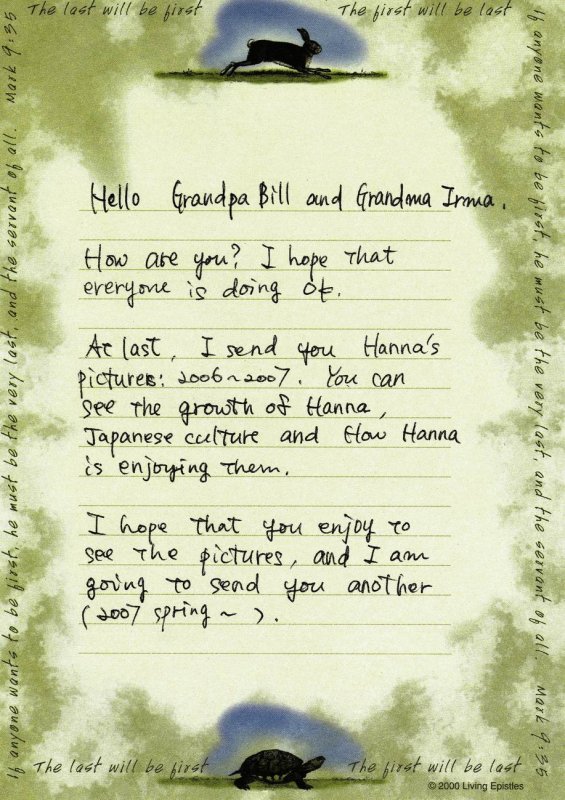 The last will be first
The first will be last
Hello Grandpa Bill and Grandma Irma.
How are you? I hope that
everyone is doing OK.
At last, I send you Hanna's
pictures: 2006~2007. You can
see the growth of Hanna,
Japanese culture and How Hanna
is enjoying them.
I hope that you enjoy to
see the pictures, and I am
going to send you another
(2007 spring ~ ).
The last will be first
The first will be last
© 2000 Living Epistles
If anyone wants to be first, he must be the very last, and the servant of all. Mark 9:35
If anyone wants to be first, he must be the very last, and the servant of all. Mark 9:35